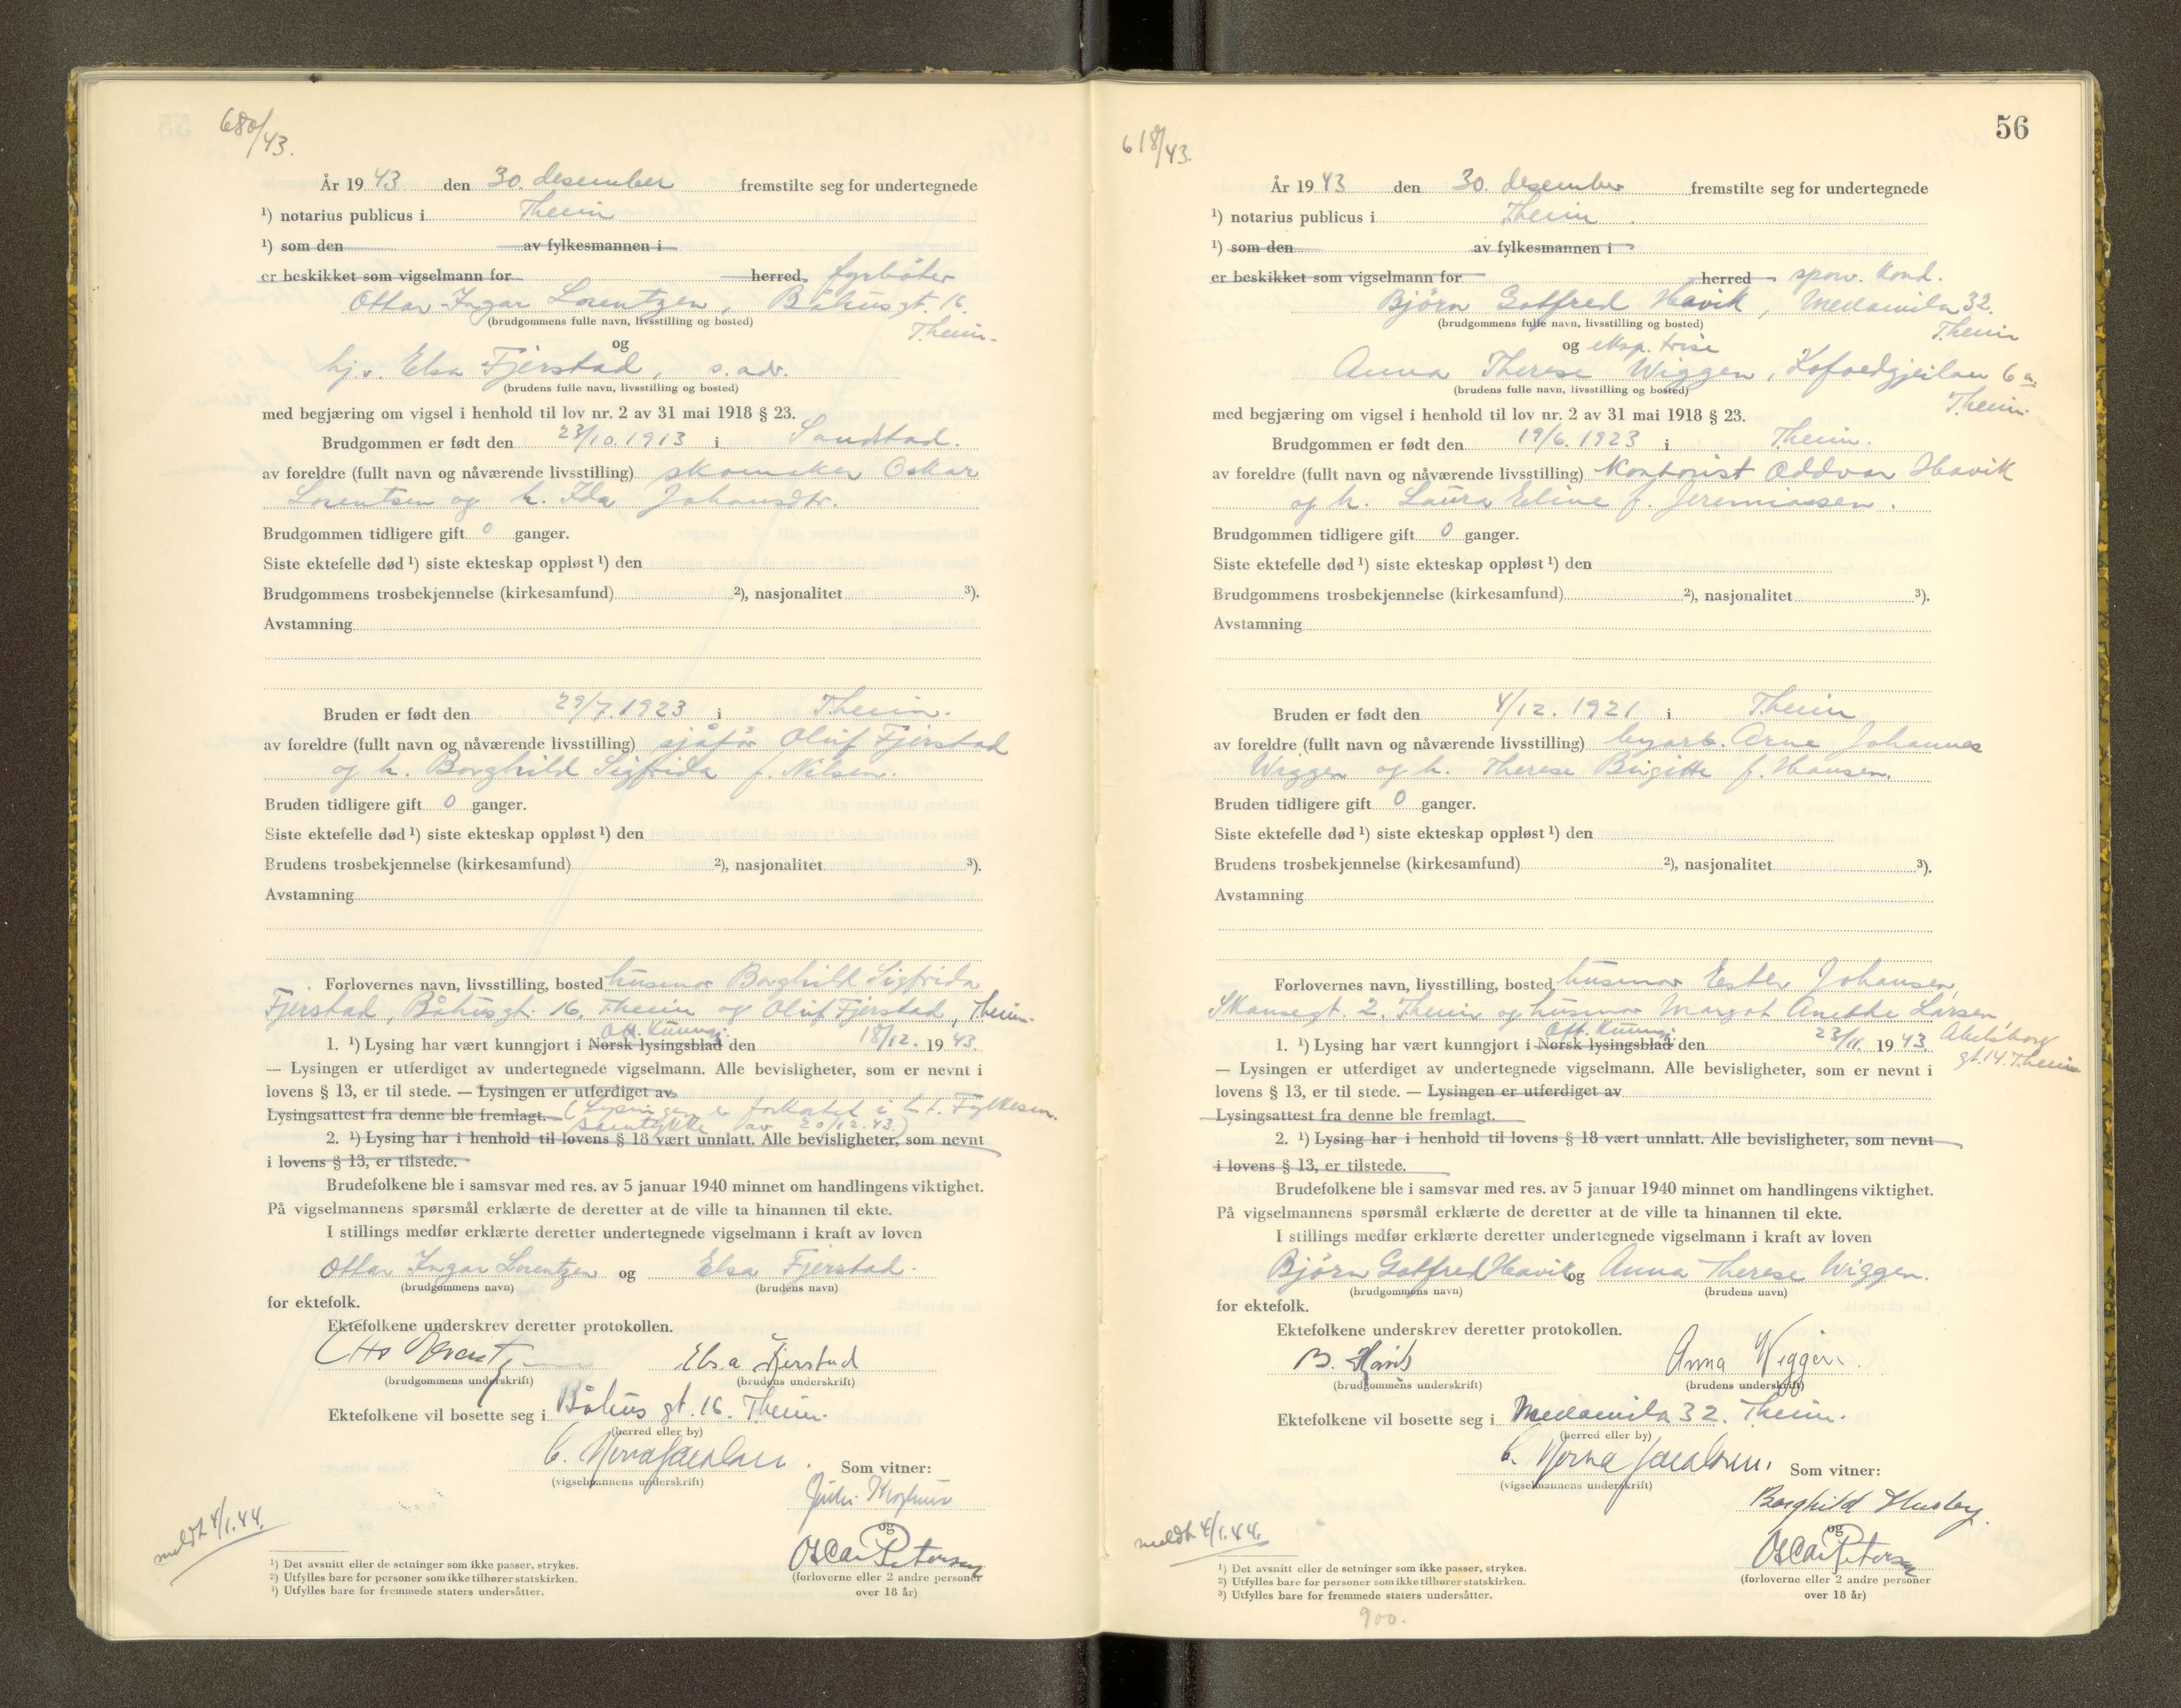 680/43.
År 1943 den 30. desember fremstilte seg for undertegnede
¹) notarius publicus i Theim
¹) som den av fylkesmannen i
er beskikket som vigselmann for herred fyrbøter
Ottar Ingar Lorentzen, Båhusgt. 16.
(brudgommens fulle navn, livsstilling og bosted) Theim.
og
hj.v. Elsa Fjerstad, s. adr.
(brudens fulle navn, livsstilling og bosted)
med begjæring om vigsel i henhold til lov nr. 2 av 31 mai 1918 § 23.
Brudgommen er født den 23/10. 1913 i Sandstad.
av foreldre (fullt navn og nåværende livsstilling) skomaker Oskar
Lorentsen og h. Ida Johansdtr.
Brudgommen tidligere gift 0 ganger.
Siste ektefelle død ¹) siste ekteskap oppløst ¹) den
Brudgommens trosbekjennelse (kirkesamfund) ²), nasjonalitet ³).
Avstamning
Bruden er født den 29/7. 1923 i Theim.
av foreldre (fullt navn og nåværende livsstilling) sjåfør Oluf Fjerstad
og h. Borghild Sigfrida f. Nilsen.
Bruden tidligere gift 0 ganger.
Siste ektefelle død ¹) siste ekteskap oppløst ¹) den
Brudens trosbekjennelse (kirkesamfund) ²), nasjonalitet ³).
Avstamning
Forlovernes navn, livsstilling, bosted husmor Borghild Sigfrida
Fjerstad, Båhusgt. 16, Theim og Oluf Fjerstad, Theim.
Off. kunngj.
1. ¹) Lysing har vært kunngjort i Norsk lysingsblad den 18/12. 1943.
— Lysingen er utferdiget av undertegnede vigselmann. Alle bevisligheter, som er nevnt i
lovens § 13, er til stede. — Lysingen er utferdiget av
Lysingsattest fra denne ble fremlagt. (Lysingen er forkortet i h.t. Fylkesm.
samtykke av 20/12.43.)
2. ¹) Lysing har i henhold til lovens § 18 vært unnlatt. Alle bevisligheter, som nevnt
i lovens § 13, er tilstede.
Brudefolkene ble i samsvar med res. av 5 januar 1940 minnet om handlingens viktighet.
På vigselmannens spørsmål erklærte de deretter at de ville ta hinannen til ekte.
I stillings medfør erklærte deretter undertegnede vigselmann i kraft av loven
Ottar Ingar Lorentzen og Elsa Fjerstad.
(brudgommens navn) (brudens navn)
for ektefolk.
Ektefolkene underskrev deretter protokollen.
Elsa Fjerstad
(brudgommens underskrift) (brudens underskrift)
Ektefolkene vil bosette seg i Båhus gt. 16. Theim.
(herred eller by)
C. Norna Jacobsen. Som vitner:
(vigselmannens underskrift)
og
Oscar Petersen
(forloverne eller 2 andre personer
over 18 år)
meldt 4/1.44.
¹) Det avsnitt eller de setninger som ikke passer, strykes.
²) Utfylles bare for personer som ikke tilhører statskirken.
¹) Utfylles bare for fremmede staters undersåtter.
56
618/43.
År 1943 den 30. desember fremstilte seg for undertegnede
¹) notarius publicus i Theim.
¹) som den av fylkesmannen i
er beskikket som vigselmann for herred sporv. kond.
Bjørn Gotfred Havik, Mellomila 32.
(brudgommens fulle navn, livsstilling og bosted) Theim
og eksp. trise
Anna Therese Wiggen, Kofoedgjeilan 6 a.
(brudens fulle navn, livsstilling og bosted)
Theim.
med begjæring om vigsel i henhold til lov nr. 2 av 31 mai 1918 § 23.
Brudgommen er født den 19/6. 1923 i Theim.
av foreldre (fullt navn og nåværende livsstilling) kontorist Oddvar Havik
og h. Laura Eline f. Jeremiassen.
Brudgommen tidligere gift 0 ganger.
Siste ektefelle død ¹) siste ekteskap oppløst ¹) den
Brudgommens trosbekjennelse (kirkesamfund) ²), nasjonalitet ³).
Avstamning
Bruden er født den 4/12. 1921 i Theim
av foreldre (fullt navn og nåværende livsstilling) byarb. Arne Johannes
Wiggen og h. Therese Birgitte f. Hansen.
Bruden tidligere gift 0 ganger.
Siste ektefelle død ¹) siste ekteskap oppløst ¹) den
Brudens trosbekjennelse (kirkesamfund) ²), nasjonalitet ³).
Avstamning
Forlovernes navn, livsstilling, bosted husmor Ester Johansen,
Skansegt. 2. Theim og husmor Margot Anethe Larsen
Off. kunngj.
1. ¹) Lysing har vært kunngjort i Norsk lysingsblad den 23/11. 1943. Abelsborg
gt. 14. Theim
— Lysingen er utferdiget av undertegnede vigselmann. Alle bevisligheter, som er nevnt i
lovens § 13, er til stede. — Lysingen er utferdiget av
Lysingsattest fra denne ble fremlagt.
2. ¹) Lysing har i henhold til lovens § 18 vært unnlatt. Alle bevisligheter, som nevnt
i lovens § 13, er tilstede.
Brudefolkene ble i samsvar med res. av 5 januar 1940 minnet om handlingens viktighet.
På vigselmannens spørsmål erklærte de deretter at de ville ta hinannen til ekte.
I stillings medfør erklærte deretter undertegnede vigselmann i kraft av loven
Bjørn Gotfred Havik og Anna Therese Wiggen.
(brudgommens navn) (brudens navn)
for ektefolk.
Ektefolkene underskrev deretter protokollen.
B. Havik Anna Wiggen.
(brudgommens underskrift) (brudens underskrift)
Ektefolkene vil bosette seg i Mellomila 32. Theim.
(herred eller by)
C. Norna Jacobsen. Som vitner:
(vigselmannens underskrift)
Borghild Husby.
og
Oscar Petersen
(forloverne eller 2 andre personer
over 18 år)
meldt 4/1.44.
¹) Det avsnitt eller de setninger som ikke passer, strykes.
²) Utfylles bare for personer som ikke tilhører statskirken.
³) Utfylles bare for fremmede staters undersåtter.
900.